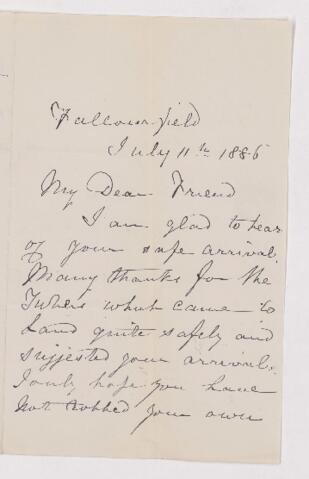 Fallowfield
July 11th 1886
My Dear Friend
I am glad to hear
of your safe arrival.
Many thanks for the
Tubers which came to
hand quite safely and
suggested your arrival.
I only hope you have
not robbed your own